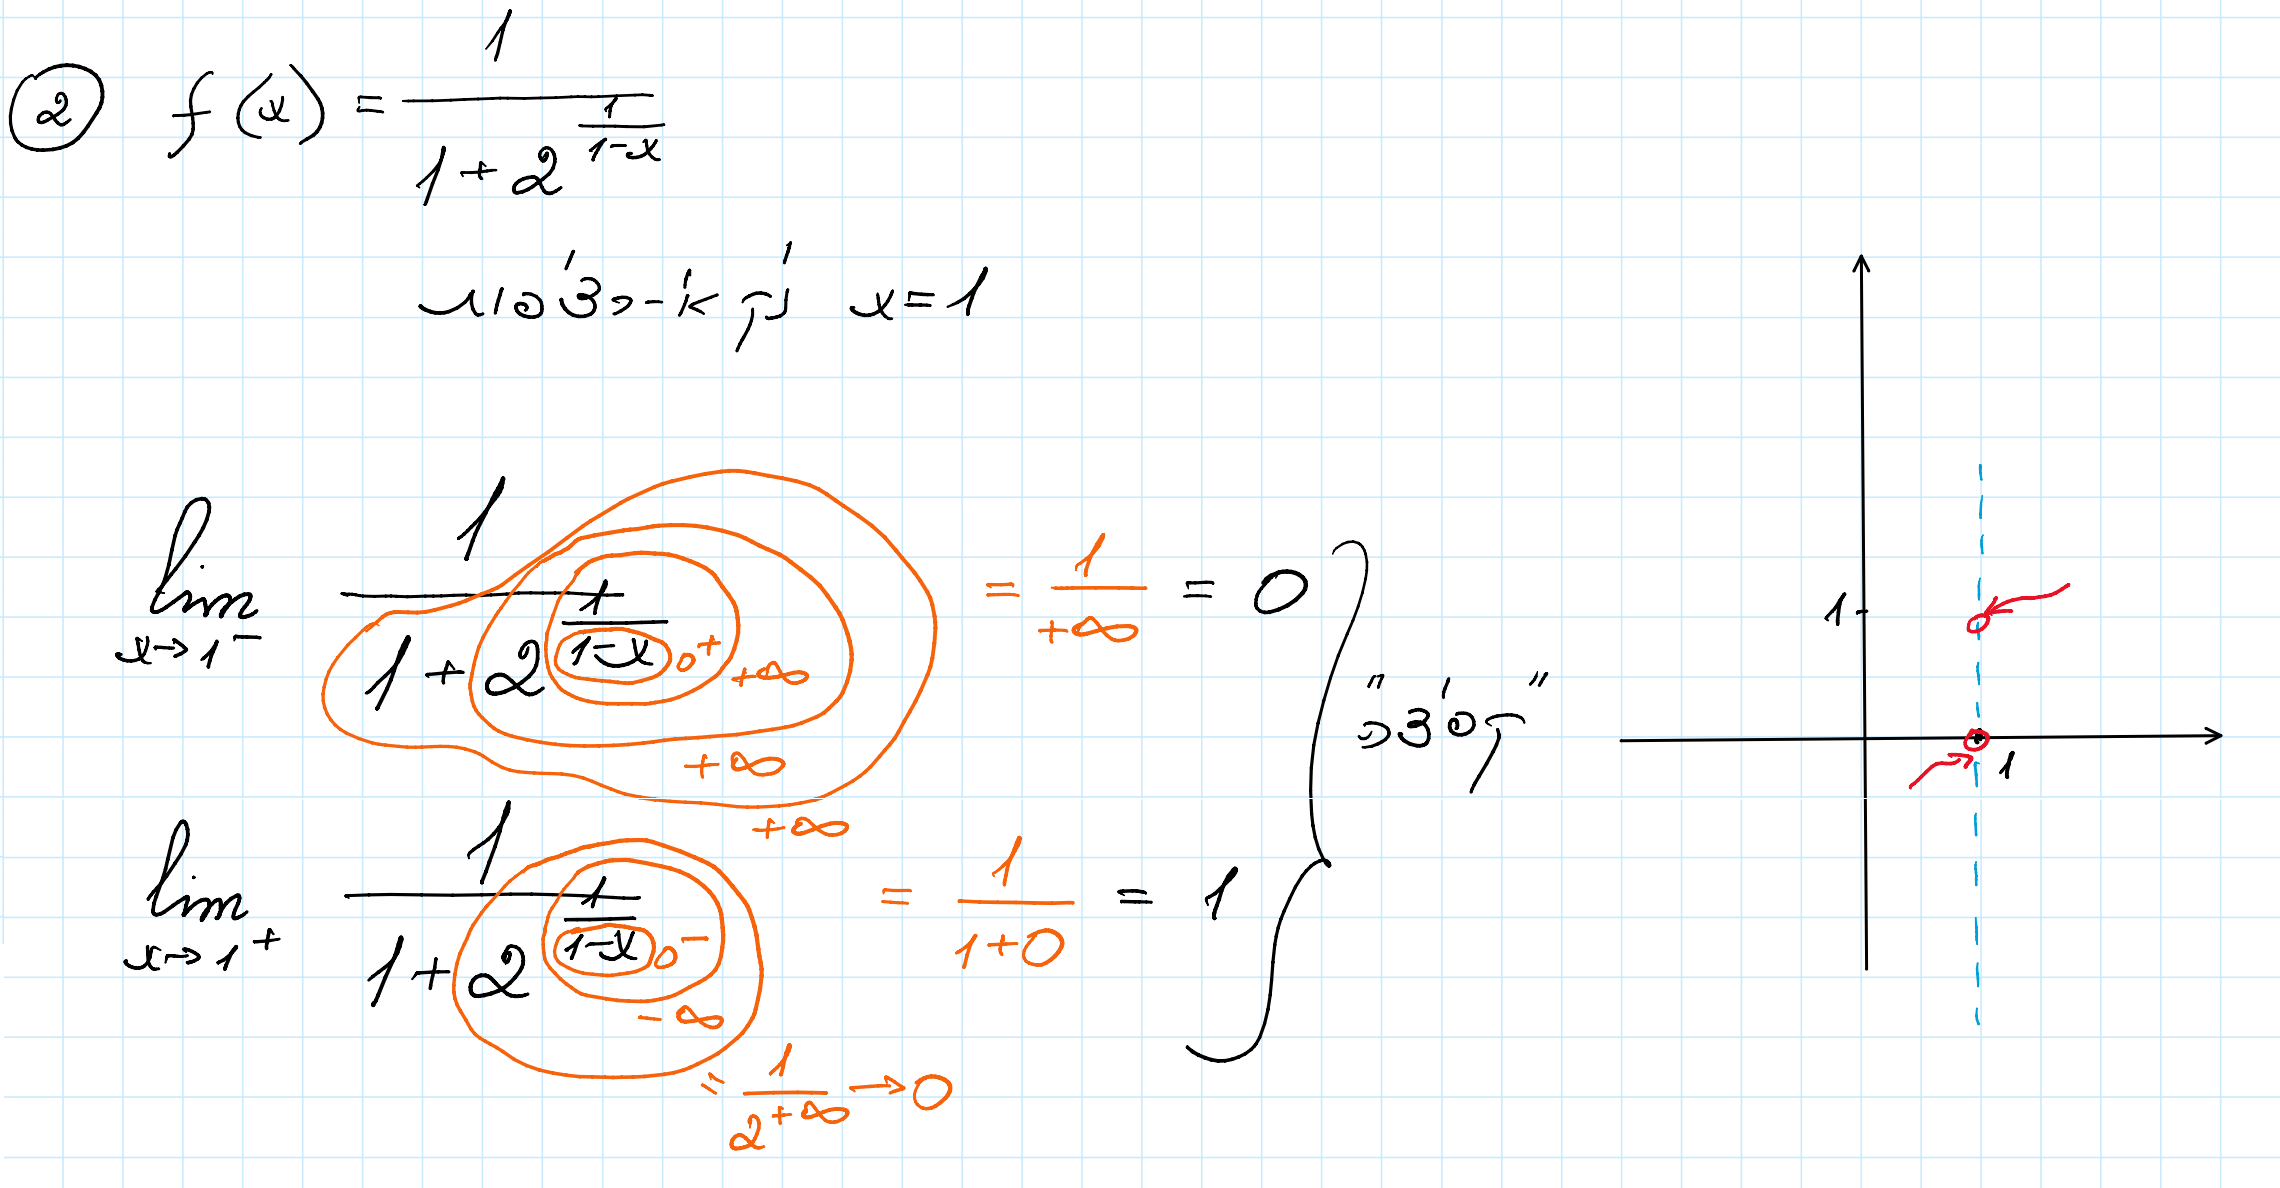 ② f(x) = \frac{1}{1+2^{\frac{1}{1-x}}}
x=1 נק' אי-רציפות
\lim_{x→1^-} \frac{1}{1+2^{\frac{1}{1-x}}} = \frac{1}{+∞} = 0
0^+
+∞
+∞
+∞
\lim_{x→1^+} \frac{1}{1+2^{\frac{1}{1-x}}} = \frac{1}{1+0} = 1
0^-
-∞
= \frac{1}{2^{+∞}} → 0
"קפיצה"
1
1